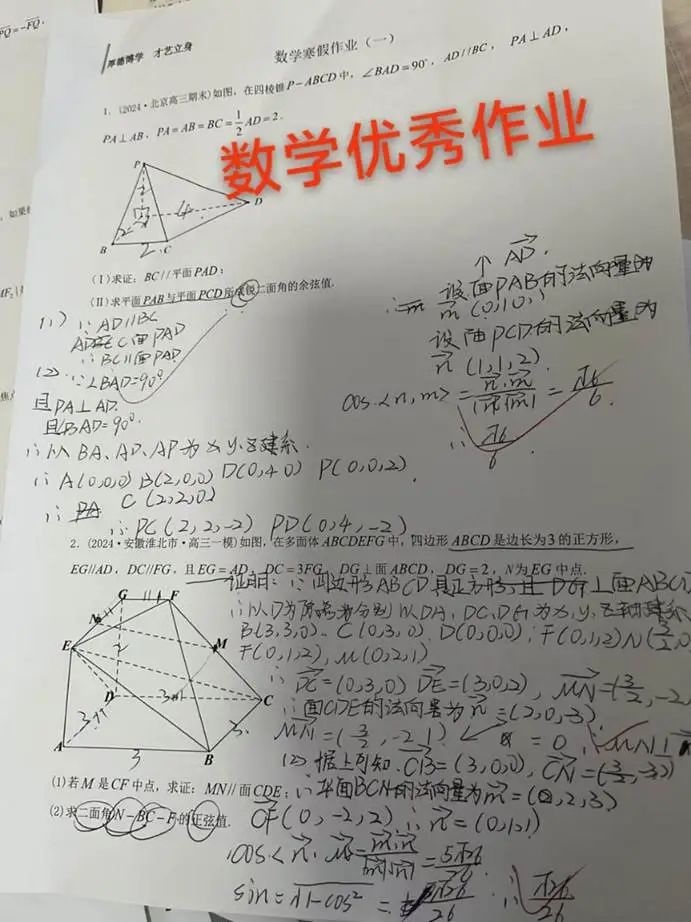 厚德博学 才艺立身
数学寒假作业（一）
1.（2024·北京高三期末）如图，在四棱锥P-ABCD中，∠BAD=90°，AD//BC，PA⊥AD，
PA⊥AB，PA=AB=BC=1/2AD=2.
数学优秀作业
P
D
B
C
2
4
2
（I）求证：BC//平面PAD；
（II）求平面PAB与平面PCD所成锐二面角的余弦值.
(1) ∵ AD//BC
AD⊂面PAD
∴ BC//面PAD
(2) ∵∠BAD=90°
且PA⊥AD.
且∠BAD=90°.
∴以BA、AD、AP为x,y,z建系.
∴ A(0,0,0) B(2,0,0) D(0,4,0) P(0,0,2)
∴ C(2,2,0)
∴ PC(2,2,-2) PD(0,4,-2)
↑ AD.
设面PAB的法向量为
m (0,1,0)
设面PCD的法向量为
n (1,1,2)
cos<n,m>=n·m/|n||m|=√6/6
∴ √6/6
2.（2024·安徽淮北市·高三一模）如图，在多面体ABCDEFG中，四边形ABCD是边长为3的正方形，
EG//AD，DC//FG，且EG=AD，DC=3FG，DG⊥面ABCD，DG=2，N为EG中点.
G
F
N
E
M
D
C
A
B
2
3
3
3
证明：∵四边形ABCD是正方形,且DG⊥面ABCD
∴以D为原点分别以DA,DC,DG为x,y,z轴建系
B(3,3,0). C(0,3,0). D(0,0,0); F(0,1,2) N(3/2,0
F(0,1,2), M(0,2,1)
∴ DC=(0,3,0) DE=(3,0,2), MN=(3/2,-2,
∴面CDE的法向量为n=(2,0,-3)
MN=(3/2,-2,1) =0 ∴MN⊥
(2) 据上可知.CB=(3,0,0), CN=(3/2,-3,2)
∴平面BCN的法向量为m=(0,2,3)
CF(0,-2,2) ∴n=(0,1,1)
cos<n·m>=m·n/|m||n|=5√26/26
sin=√1-cos²=√26/26 ∴√26/26
(1)若M是CF中点，求证：MN//面CDE；
(2)求二面角N-BC-F的正弦值.